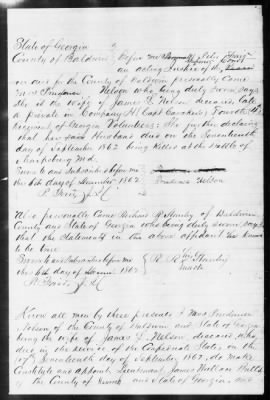 State of Georgia
County of Baldwin Before me
an acting Justice of the
in and for the County of Baldwin personally came
Mrs Prudence Nelson who being duly sworn says
she is the wife of James L Nelson deceased late
a private in Company H Capt Fourth (4)
regiment of Georgia Volunteers: She further declares
that her said Husband died on the Seventeenth
day of September 1862 being Killed at the Battle of
Sharpsburg Md.
Sworn to and Subscribed before me
the 6th day of December 1862 Prudence Nelson
P. J.P.
Also personally Came of Baldwin
County and State of Georgia who being duly sworn says
that the statements in the above affidavit are known
to be true
Sworn to and Subscribed before me
the 6th day of 1862 mark
P. J.P.
Know all men by these presents I Mrs Prudence
Nelson of the County of Baldwin and State of Georgia
being the wife of James L Nelson deceased who
died in the service of the Confederate States on the
(17) Seventeenth day of September 1862, do make
Constitute and appoint Lieutenant James William
of the County of and State of Georgia my